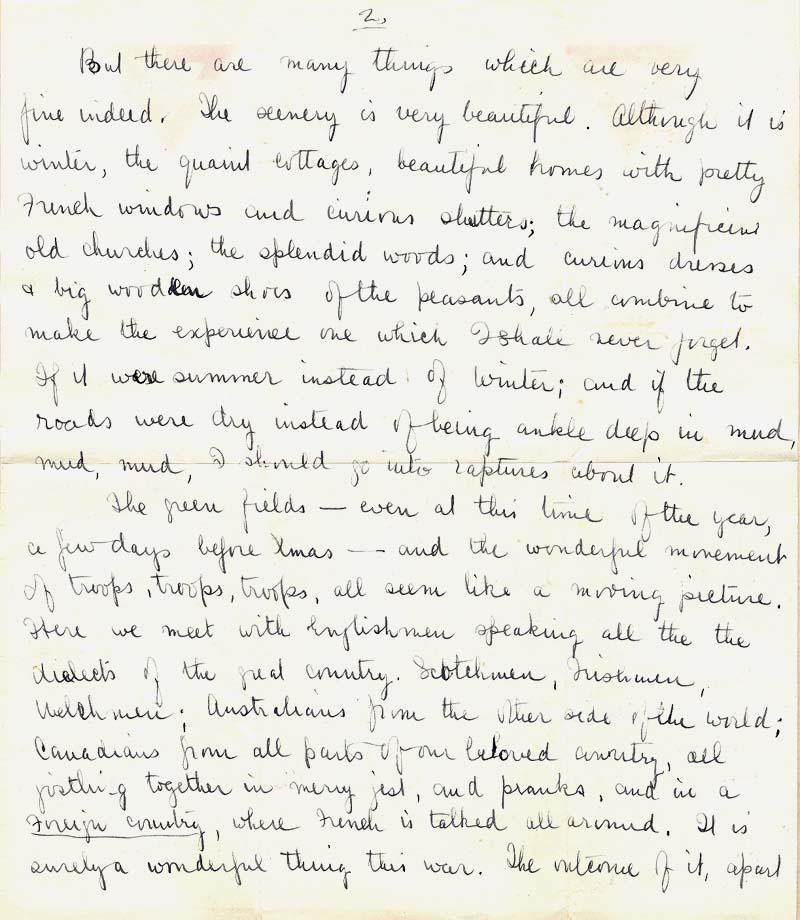 2.
But there are many things which are very
fine indeed. The scenery is very beautiful. Although it is
winter, the quaint cottages, beautiful homes with pretty
French windows and curious shutters; the magnificent
old churches; the splendid woods; and curious dresses
& big wooden shoes of the peasants, all combine to
make the experience one which I shall never forget.
If it were summer instead of winter; and if the
roads were dry instead of being ankle deep in mud,
mud, mud, I should go into raptures about it.
The green fields — even at this time of the year,
a few days before Xmas -- and the wonderful movement
of troops, troops, troops, all seem like a moving picture.
Here we meet with Englishmen speaking all the the
dialects of the great country. Scotchmen, Irishmen,
Welchmen; Australians from the other side of the world;
Canadians from all parts of our beloved country, all
jostling together in merry jest, and pranks, and in a
Foreign country, where French is talked all around. It is
surely a wonderful thing this war. The outcome of it, apart